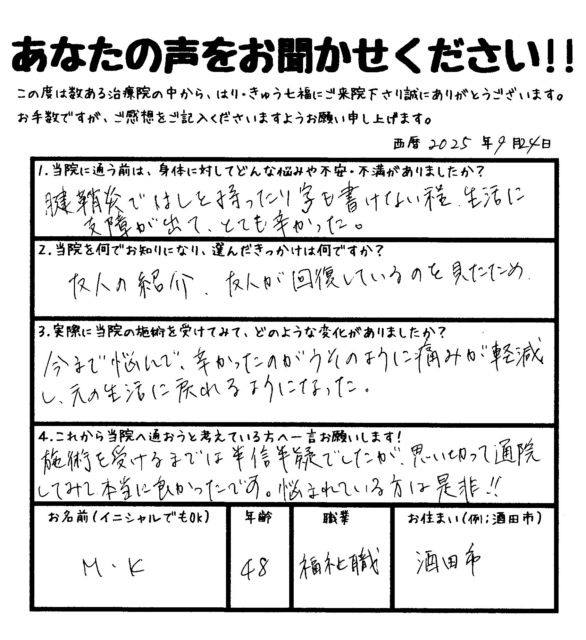 あなたの声をお聞かせください!!
この度は数ある治療院の中から、はり・きゅう七福にご来院下さり誠にありがとうございます。
お手数ですが、ご感想をご記入くださいますようお願い申し上げます。
西暦 2025 年9月24日
1.当院に通う前は、身体に対してどんな悩みや不安・不満がありましたか?
腱鞘炎ではしを持ったり字も書けない程、生活に
支障が出て、とても辛かった。
2.当院を何でお知りになり、選んだきっかけは何ですか?
友人の紹介、友人が回復しているのを見たため、
3.実際に当院の施術を受けてみて、どのような変化がありましたか?
今まで悩んで、辛かったのがうそのように痛みが軽減
し、元の生活に戻れるようになった。
4.これから当院へ通おうと考えている方へ一言お願いします!
施術を受けるまでは半信半疑でしたが、思い切って通院
してみて本当に良かったです。悩まれている方は是非!!
お名前(イニシャルでもOK) 年齢 職業 お住まい(例;酒田市)
M・K 48 福祉職 酒田市